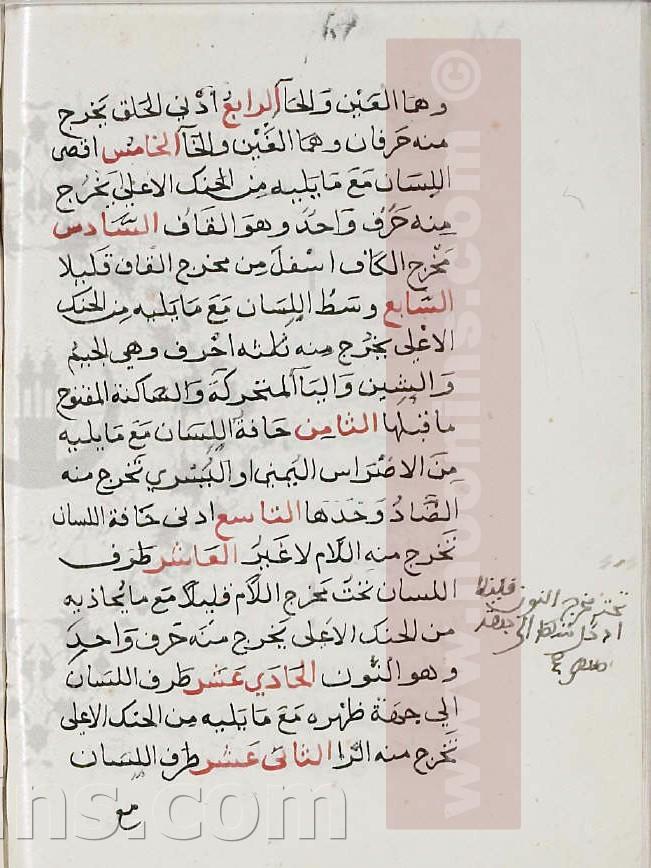 وهما العَيْن وَالحَآ الرابعُ أدْنى الحَلق يَخرج
منه حَرفان وهما الغَيْن والخَآ الخامسُ اقصى
اللسَان مَعَ مَا يَليه مِنَ الحنك الاعلى يَخْرُج
مِنه حَرُف وَاحدٌ وهو القَاف السَّادس
مَخْرج الكَاف اسْفلَ مِن مخرج القاف قَليلا
السَّابع وسَطُ اللِسَان مَعَ مَا يَليه مِنَ الحنك
الاعْلى يَخرُج منه ثلثه احْرف وهي الجيْم
وَالشين واليَآ المتحركَة وَالسَّاكنة المفتوح
ما قبلها الثَامِن حَافةُ اللِسَان مَعَ مَا يليه
مِنَ الاضْرَاس اليُمنى او اليُسْرى تَخرج منه
الضَّادُ وَحْدَهَا التاسع ادنى حَافة اللسَان
تَخرج منه اللام لا غَيْر العَاشر طَرَف
اللسَان تَحْتَ مَخرج اللام قليلاً مَعَ مَا يُحاذيه
من الحنك الاعْلى يَخرج منه حَرف وَاحد
وهو النُّون الحَادي عَشر طَرف اللسَان
الي جهَة ظهره مَعَ مَا يَليه مِنَ الحنك الاعلى
تَخرج منه الرَّا الثاني عَشر طَرف اللسَان
مع
تحت مخرج النون قليلا
ادخل
www.noonins.com
ns.com